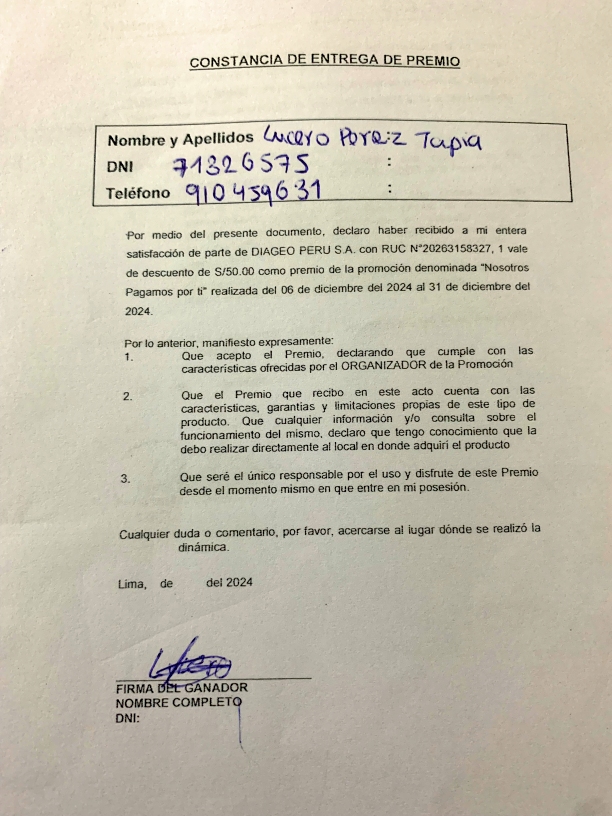 CONSTANCIA DE ENTREGA DE PREMIO
Nombre y Apellidos Lucero Perez Tapia
DNI 71326575 :
Teléfono 910459631 :
Por medio del presente documento, declaro haber recibido a mi entera
satisfacción de parte de DIAGEO PERU S.A. con RUC N°20263158327, 1 vale
de descuento de S/50.00 como premio de la promoción denominada "Nosotros
Pagamos por ti" realizada del 06 de diciembre del 2024 al 31 de diciembre del
2024.
Por lo anterior, manifiesto expresamente:
1. Que acepto el Premio, declarando que cumple con las
características ofrecidas por el ORGANIZADOR de la Promoción
2. Que el Premio que recibo en este acto cuenta con las
características, garantías y limitaciones propias de este tipo de
producto. Que cualquier información y/o consulta sobre el
funcionamiento del mismo, declaro que tengo conocimiento que la
debo realizar directamente al local en donde adquirí el producto
3. Que seré el único responsable por el uso y disfrute de este Premio
desde el momento mismo en que entre en mi posesión.
Cualquier duda o comentario, por favor, acercarse al lugar dónde se realizó la
dinámica.
Lima, de del 2024
FIRMA DEL GANADOR
NOMBRE COMPLETO
DNI: